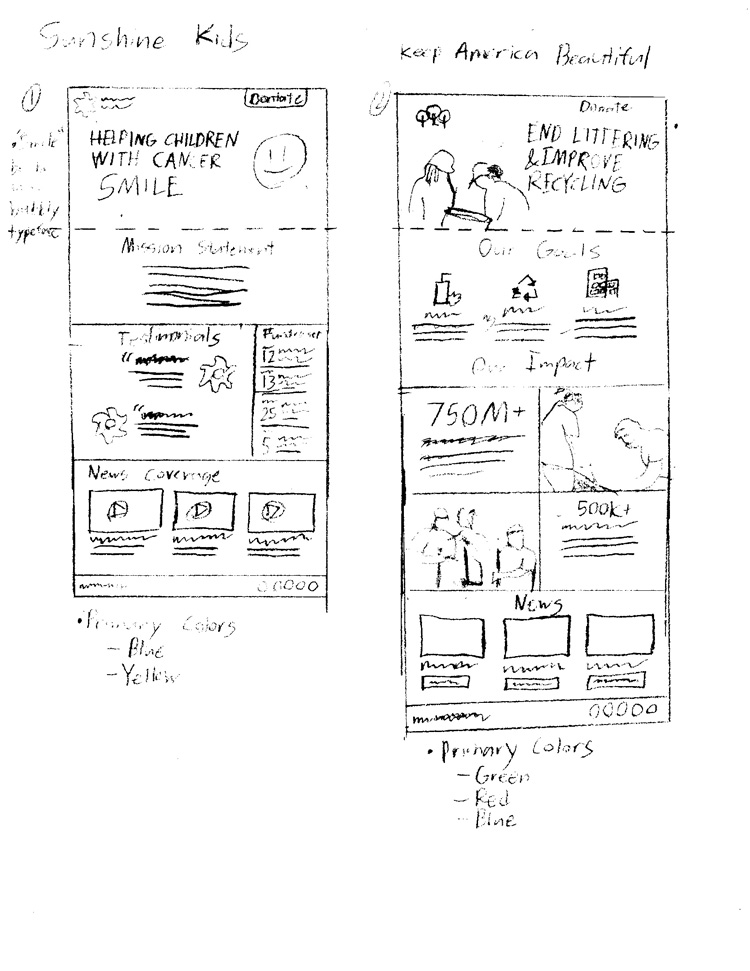 Sunshine Kids
1
Donate
"Smile"
typeface
HELPING CHILDREN
WITH CANCER
SMILE
Mission Statement
Testimonials
Fundraiser
12
13
25
5
News Coverage
• Primary Colors
– Blue
– Yellow
Keep America Beautiful
2
Donate
END LITTERING
& IMPROVE
RECYCLING
Our Goals
Our Impact
750M+
500K+
News
• Primary Colors
– Green
– Red
– Blue